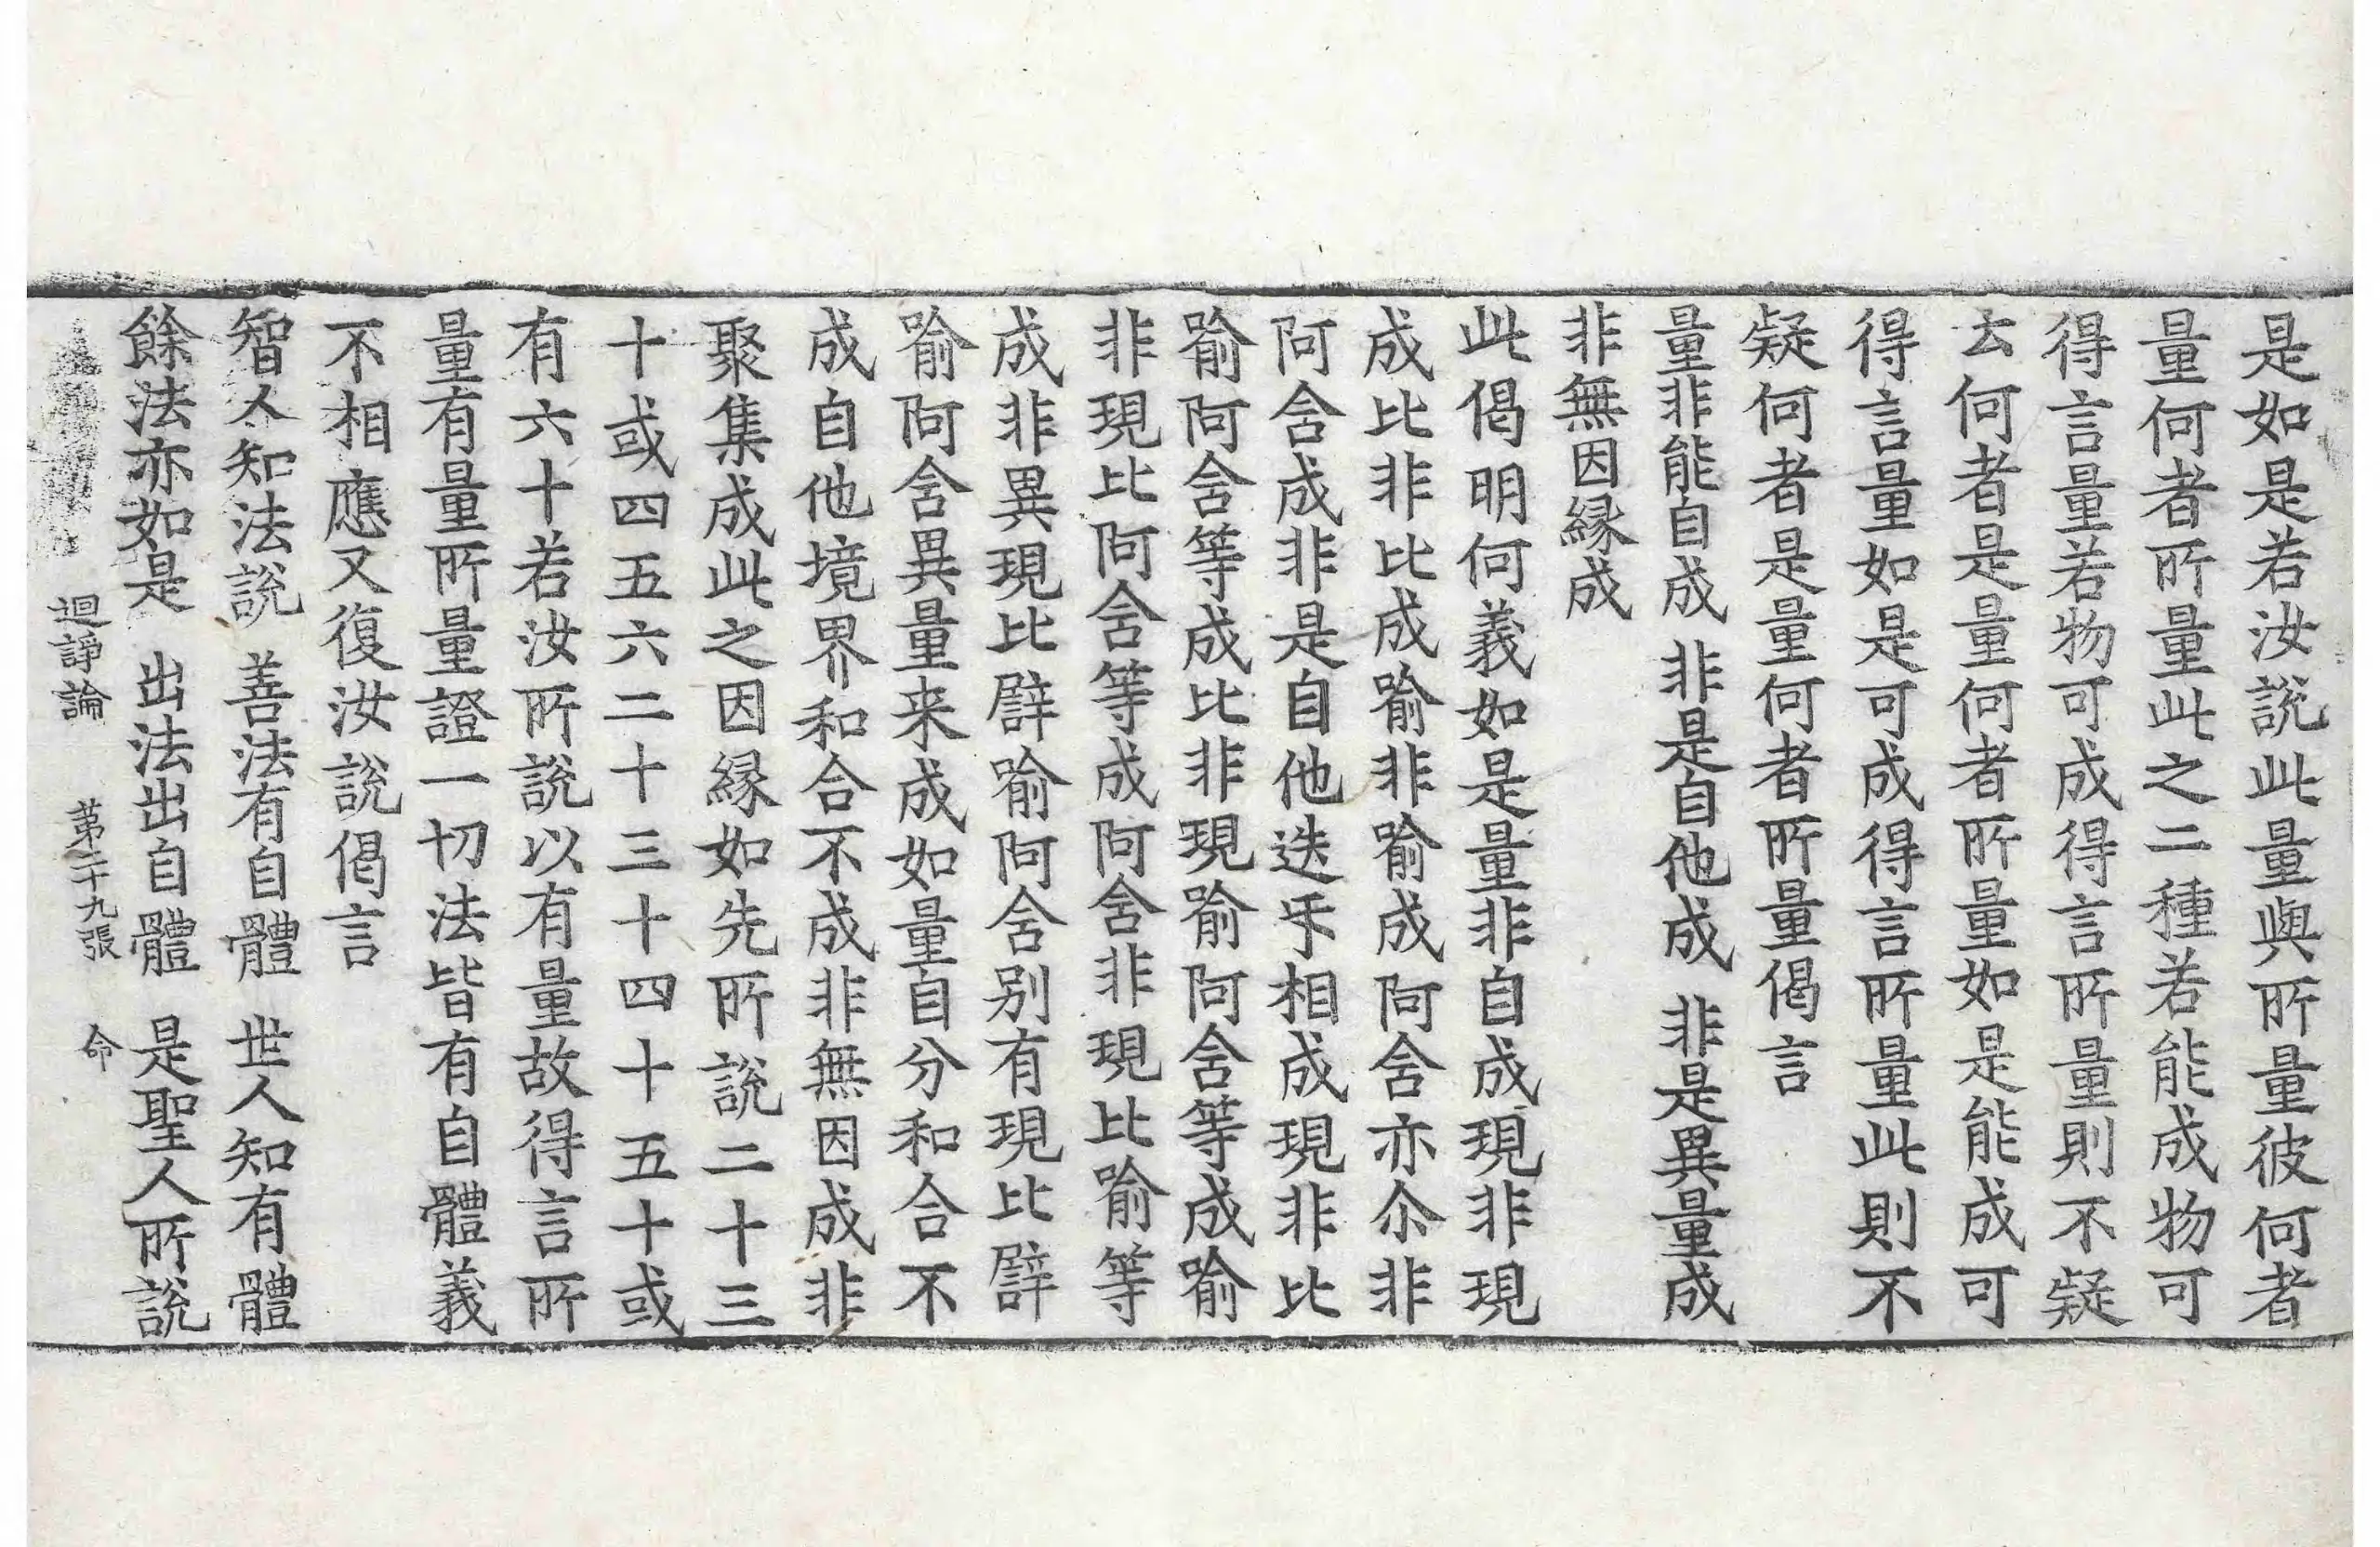 是如是若汝說此量與所量彼何者
量何者所量此之二種若能成物可
得言量若物可成得言所量則不疑
云何者是量何者所量如是能成可
得言量如是可成得言所量此則不
疑何者是量何者所量偈言
量非能自成 非是自他成 非是異量成
非無因緣成
此偈明何義如是量非自成現非現
成比非比成喻非喻成阿含亦尒非
阿含成非是自他迭𠄔相成現非比
喻阿含等成比非現喻阿含等成喻
非現比阿含等成阿含非現比喻等
成非異現比譬喻阿含別有現比譬
喻阿含異量来成如量自分和合不
成自他境界和合不成非無因成非
聚集成此之因緣如先所說二十三
十或四五六二十三十四十五十或
有六十若汝所說以有量故得言所
量有量所量證一切法皆有自體義
不相應又復汝說偈言
智人知法說 善法有自體 世人知有體
餘法亦如是 出法出自體 是聖人所說
迴諍論 苐二十九張 命